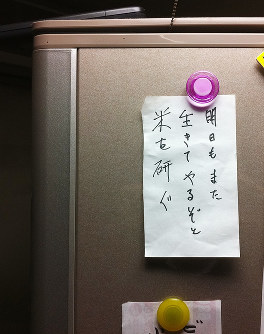 明日もまた
生きてやるぞと
米を研ぐ